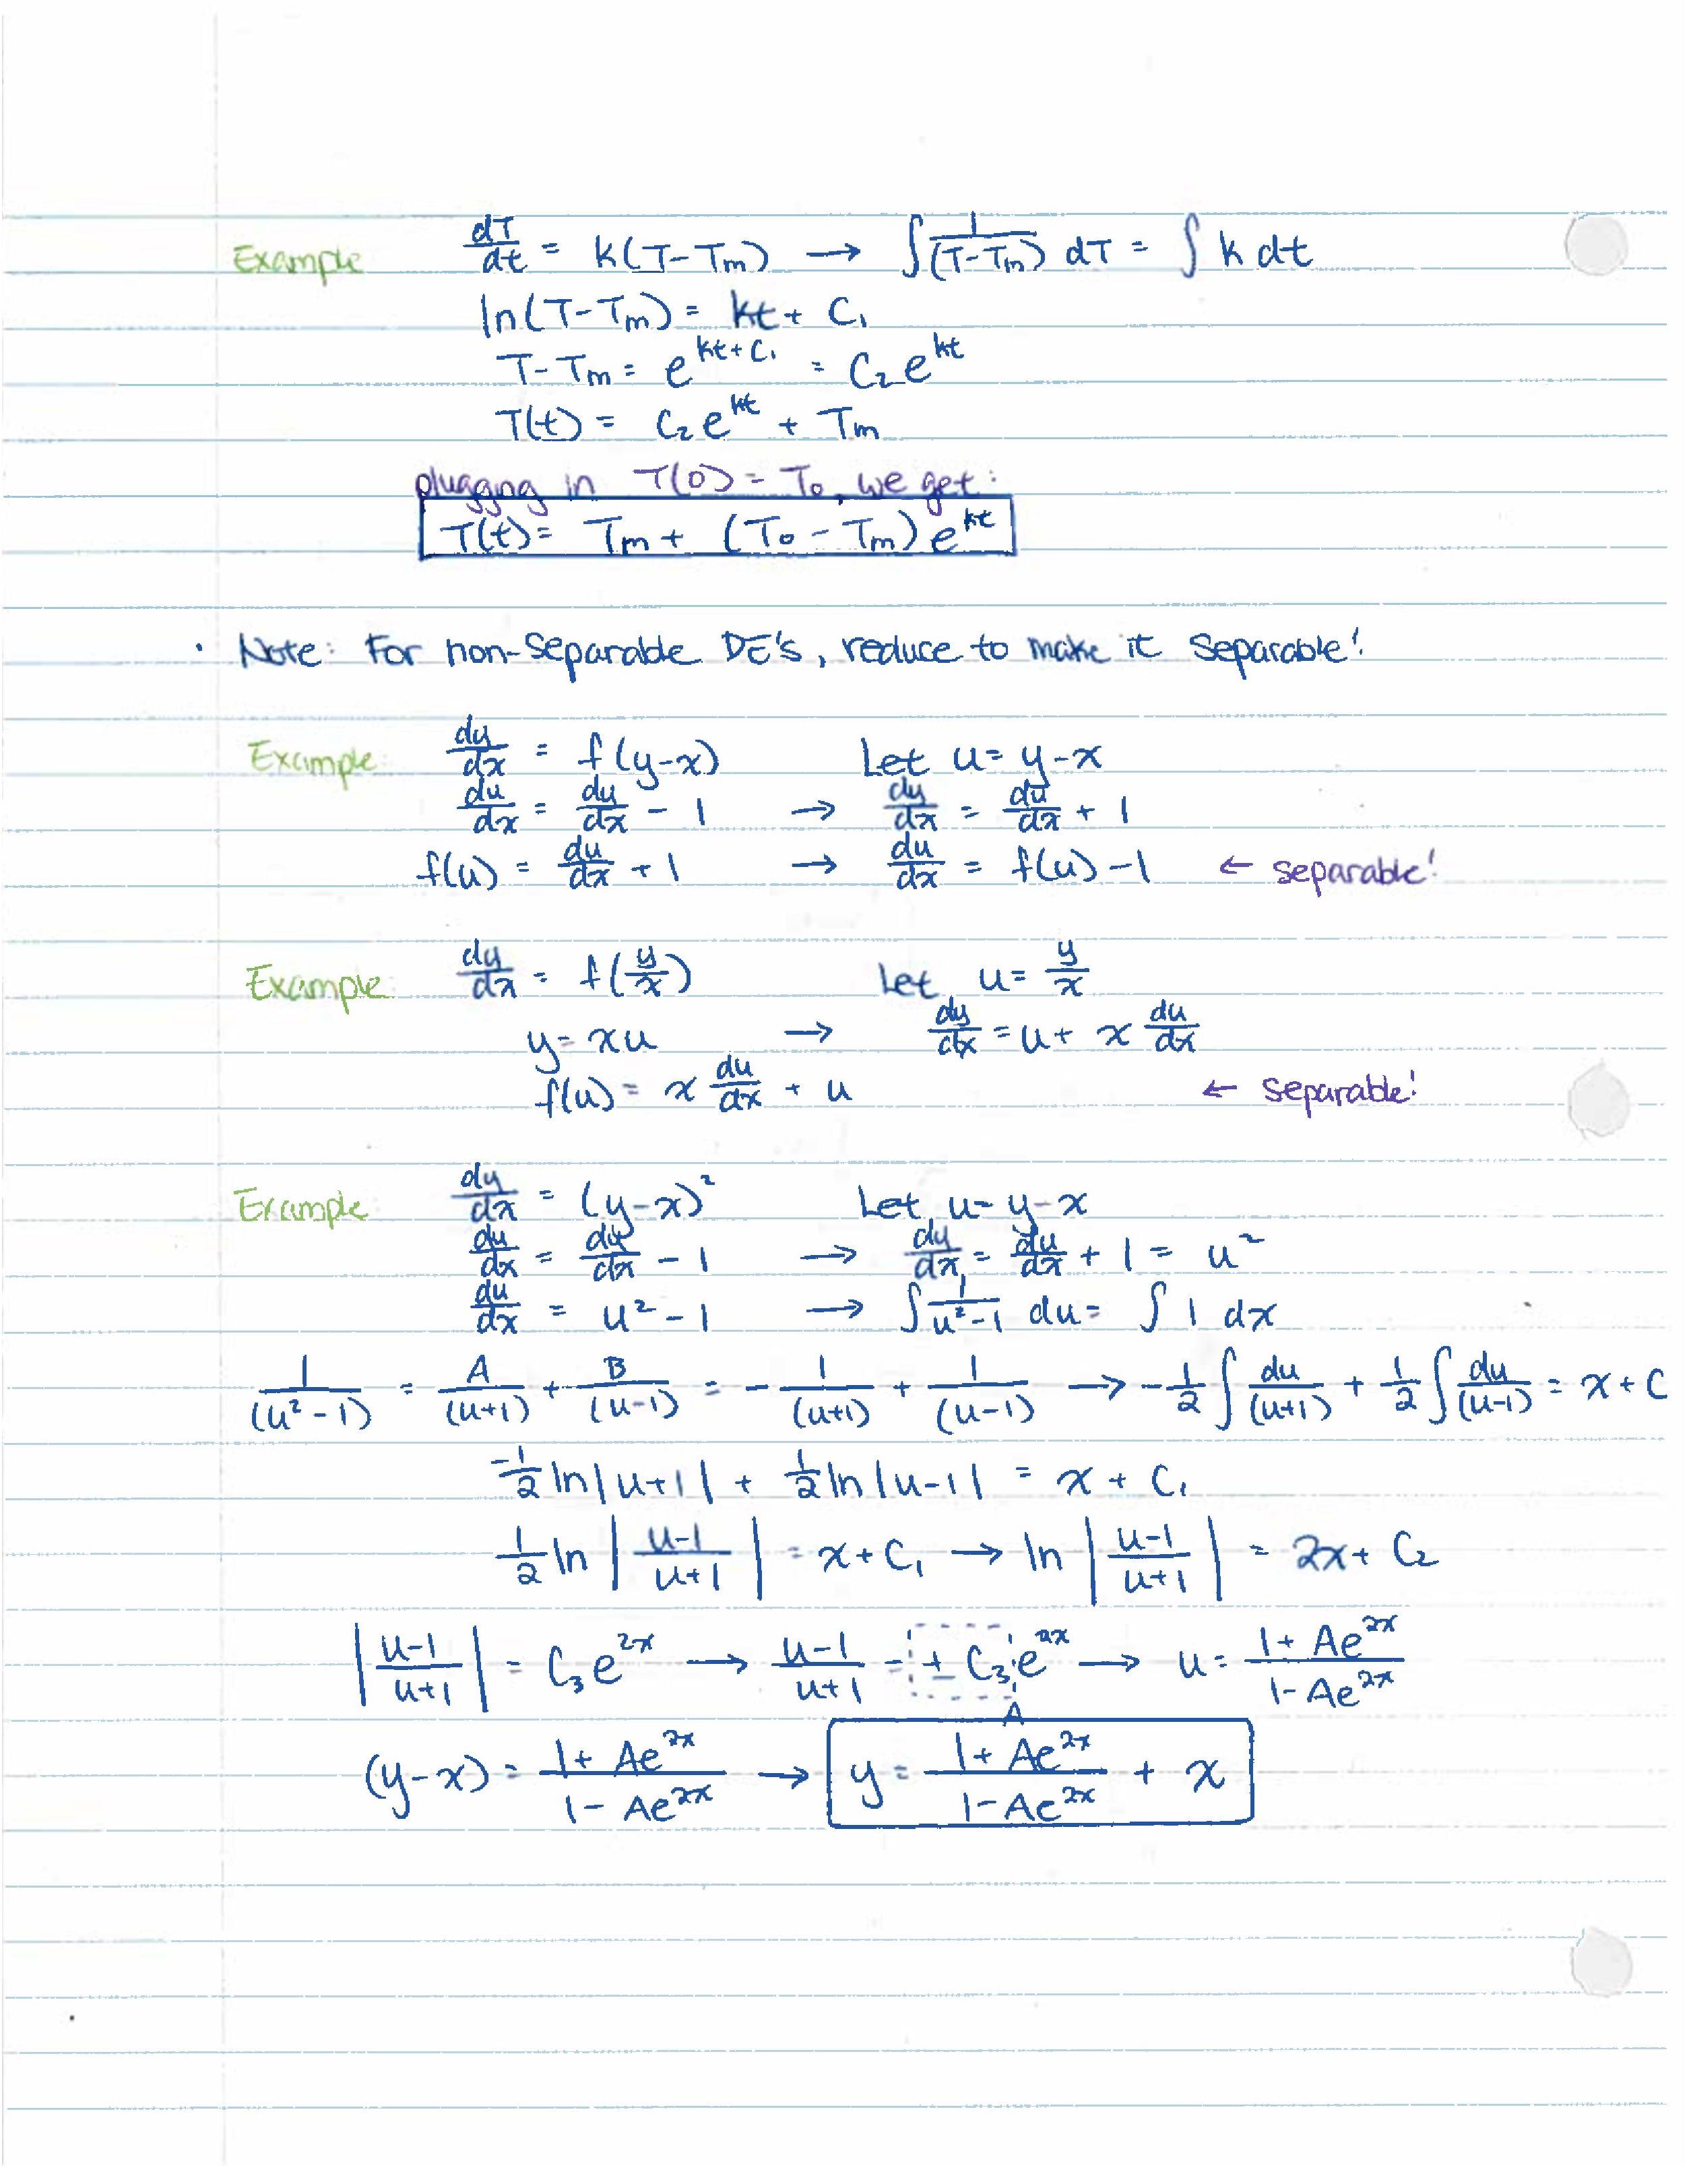 Example dT/dt = k(T-Tm) → ∫ 1/(T-Tm) dT = ∫ k dt
ln(T-Tm) = kt + C₁
T-Tm = e^(kt+C₁) = C₂e^(kt)
T(t) = C₂e^(kt) + Tm
pluggng in T(0) = T₀, we get:
T(t) = Tm + (T₀ - Tm) e^(kt)
· Note: For non-separable DE's, reduce to make it separable!
Example: dy/dx = f(y-x) Let u = y-x
du/dx = dy/dx - 1 → dy/dx = du/dx + 1
f(u) = du/dx + 1 → du/dx = f(u) - 1 ← separable!
Example: dy/dx = f(y/x) Let u = y/x
y = xu → dy/dx = u + x du/dx
f(u) = x du/dx + u ← separable!
Example dy/dx = (y-x)² Let u = y-x
du/dx = dy/dx - 1 → dy/dx = du/dx + 1 = u²
du/dx = u² - 1 → ∫ 1/(u²-1) du = ∫ 1 dx
1/(u²-1) = A/(u+1) + B/(u-1) = - 1/(u+1) + 1/(u-1) → -1/2 ∫ du/(u+1) + 1/2 ∫ du/(u-1) = x + C
-1/2 ln|u+1| + 1/2 ln|u-1| = x + C₁
1/2 ln |(u-1)/(u+1)| = x + C₁ → ln |(u-1)/(u+1)| = 2x + C₂
|(u-1)/(u+1)| = C₃e^(2x) → (u-1)/(u+1) = ± C₃ e^(2x) → u = (1 + Ae^(2x))/(1 - Ae^(2x))
A
(y-x) = (1 + Ae^(2x))/(1 - Ae^(2x)) → y = (1 + Ae^(2x))/(1 - Ae^(2x)) + x